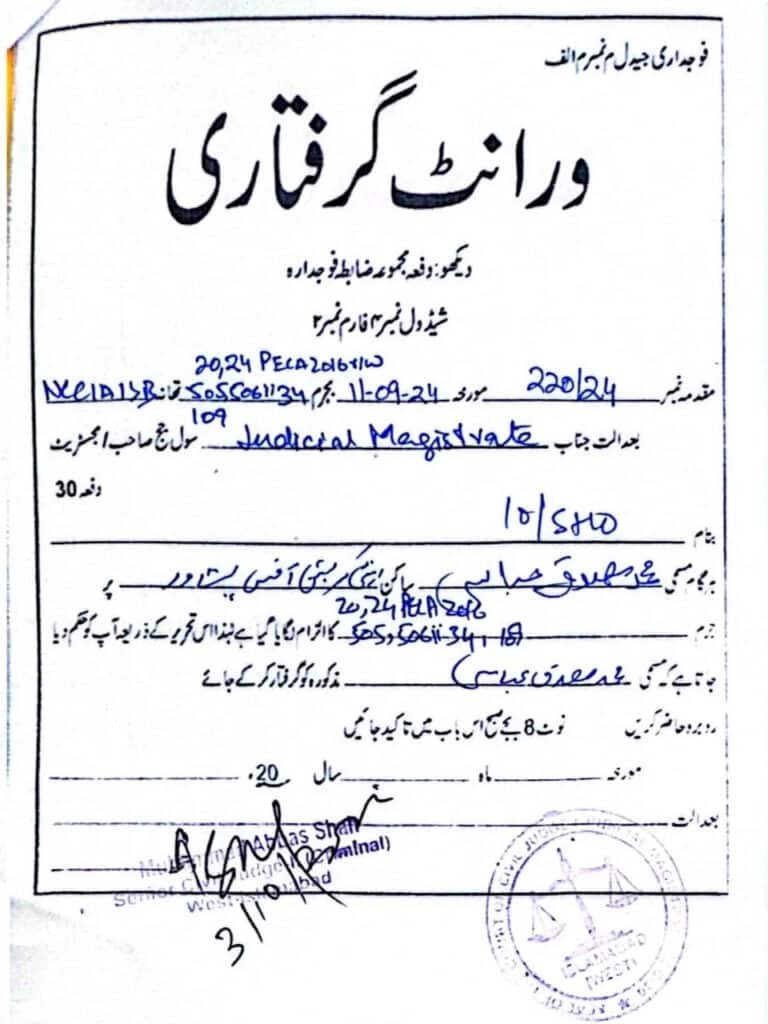 فوجداری جیدل م نمبر م الف
ورانٹ گرفتاری
دیکھو: دفعہ مجموعہ ضابطہ فوجدارہ
شیڈول نمبر ۴ فارم نمبر ۲
20,24 PECA 2016 r/w
مقدمہ نمبر 220/24 مورخہ 11-09-24 بجرم 505 506ii 34 تھانہ NCCIA ISB
109
بعدالت جناب Judicial Magistrate سول جج صاحب / مجسٹریٹ
دفعہ 30
بنام IO/SHO
بہ گاہ مسمی محمد مصدق عباسی ساکن اینٹی کرپشن آفس پشاور پر
20,24 PECA 2016
جرم 505, 506ii 34, 109 کا الزام لگایا گیا ہے لہٰذا اس تحریر کے ذریعہ آپ کو حکم دیا
جاتا ہے کہ مسمی محمد مصدق عباسی مذکورہ کو گرفتار کر کے جائے
روبرو حاضر کریں نوٹ 8 بجے صبح اس باب میں تاکید جائیں
مورخہ ماہ سال 20ء
بعدالت
Muhammad Abbas Shah
Senior Civil Judge (Criminal)
West-Islamabad
3/10/
ISLAMABAD
(WEST)